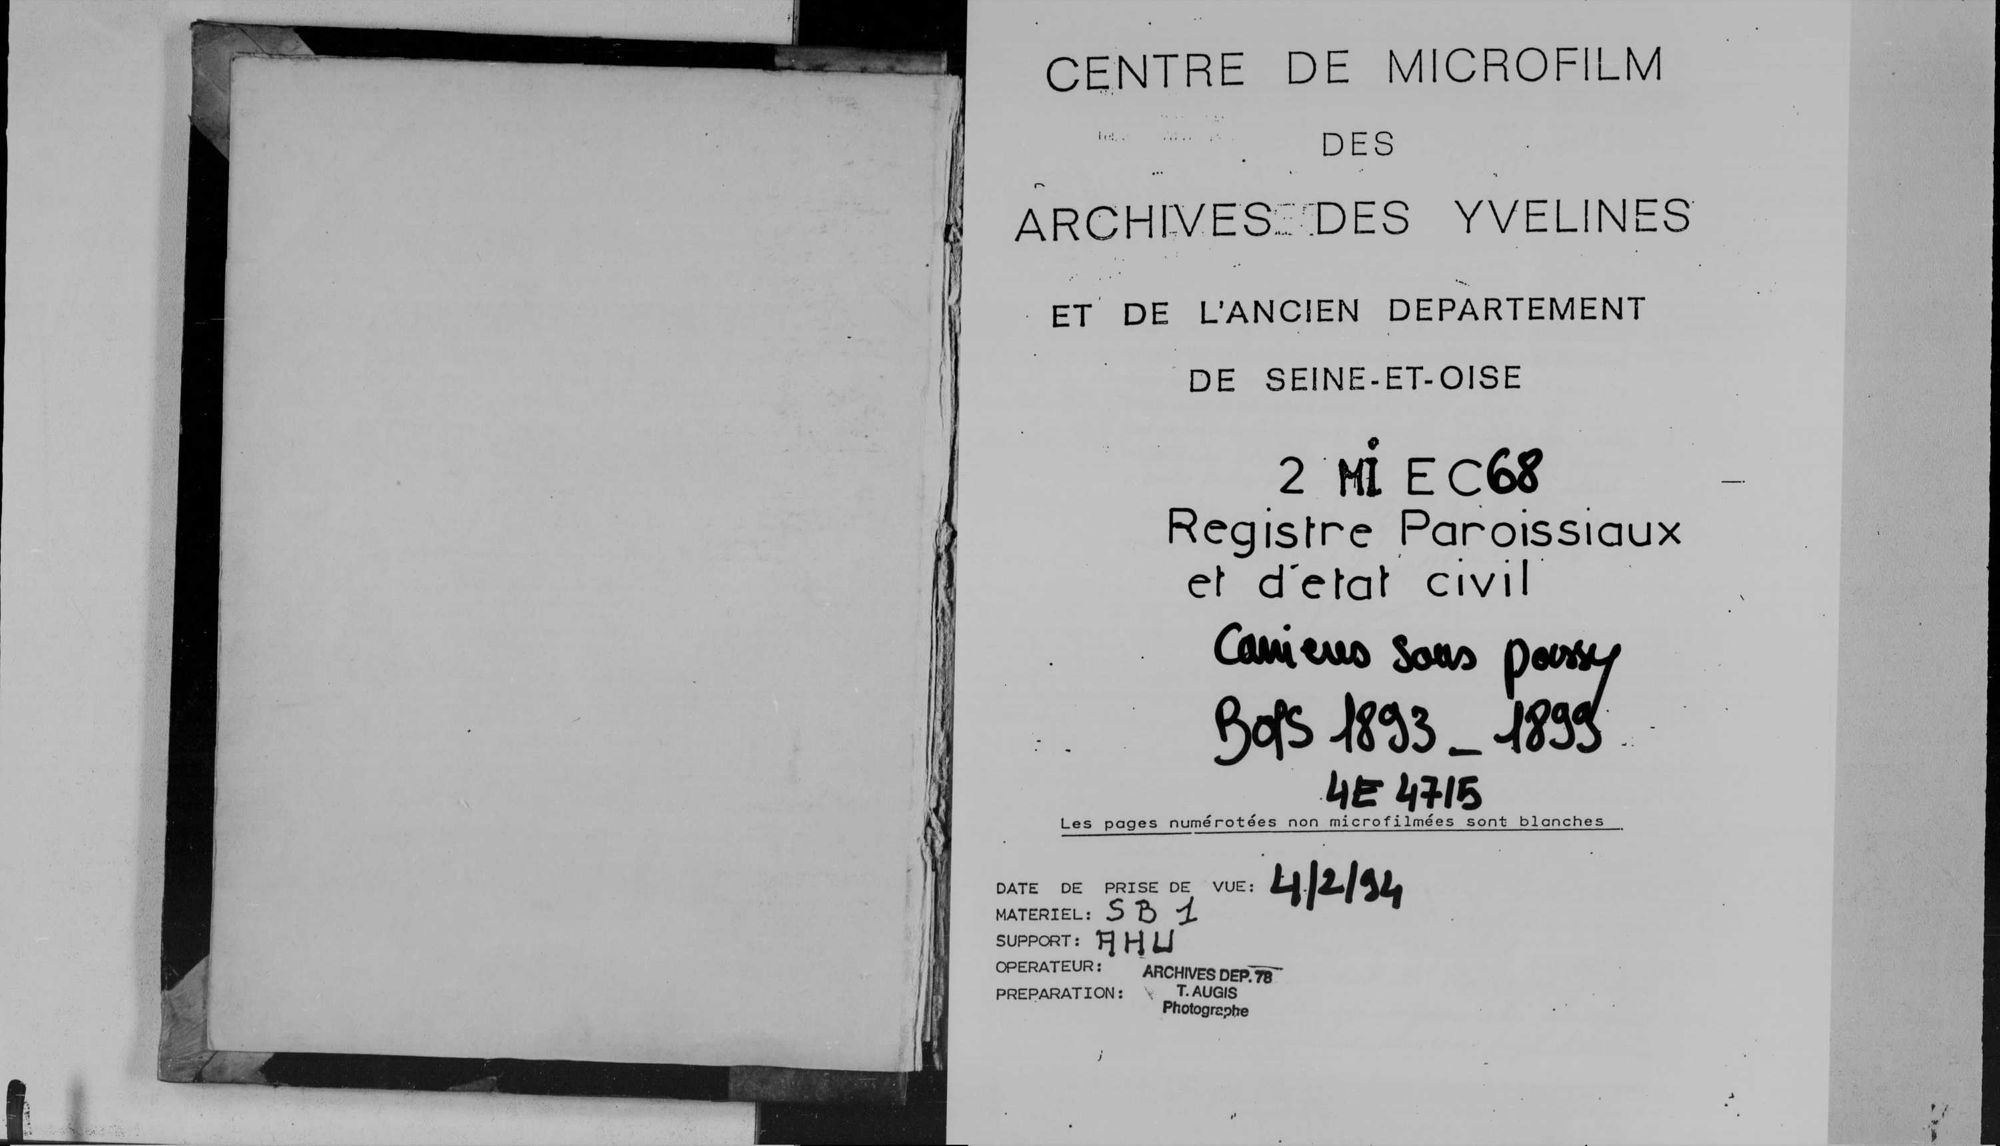 CENTRE DE MICROFILM
DES
ARCHIVES DES YVELINES
ET DE L'ANCIEN DEPARTEMENT
DE SEINE-ET-OISE
2 Mi EC68
Registre Paroissiaux
et d'etat civil
Carrieres sous poissy
1893 _ 1899
4E 4715
Les pages numérotées non microfilmées sont blanches
DATE DE PRISE DE VUE: 4/2/94
MATERIEL: SB 1
SUPPORT: AHU
OPERATEUR: ARCHIVES DEP. 78
PREPARATION: T. AUGIS
Photographe